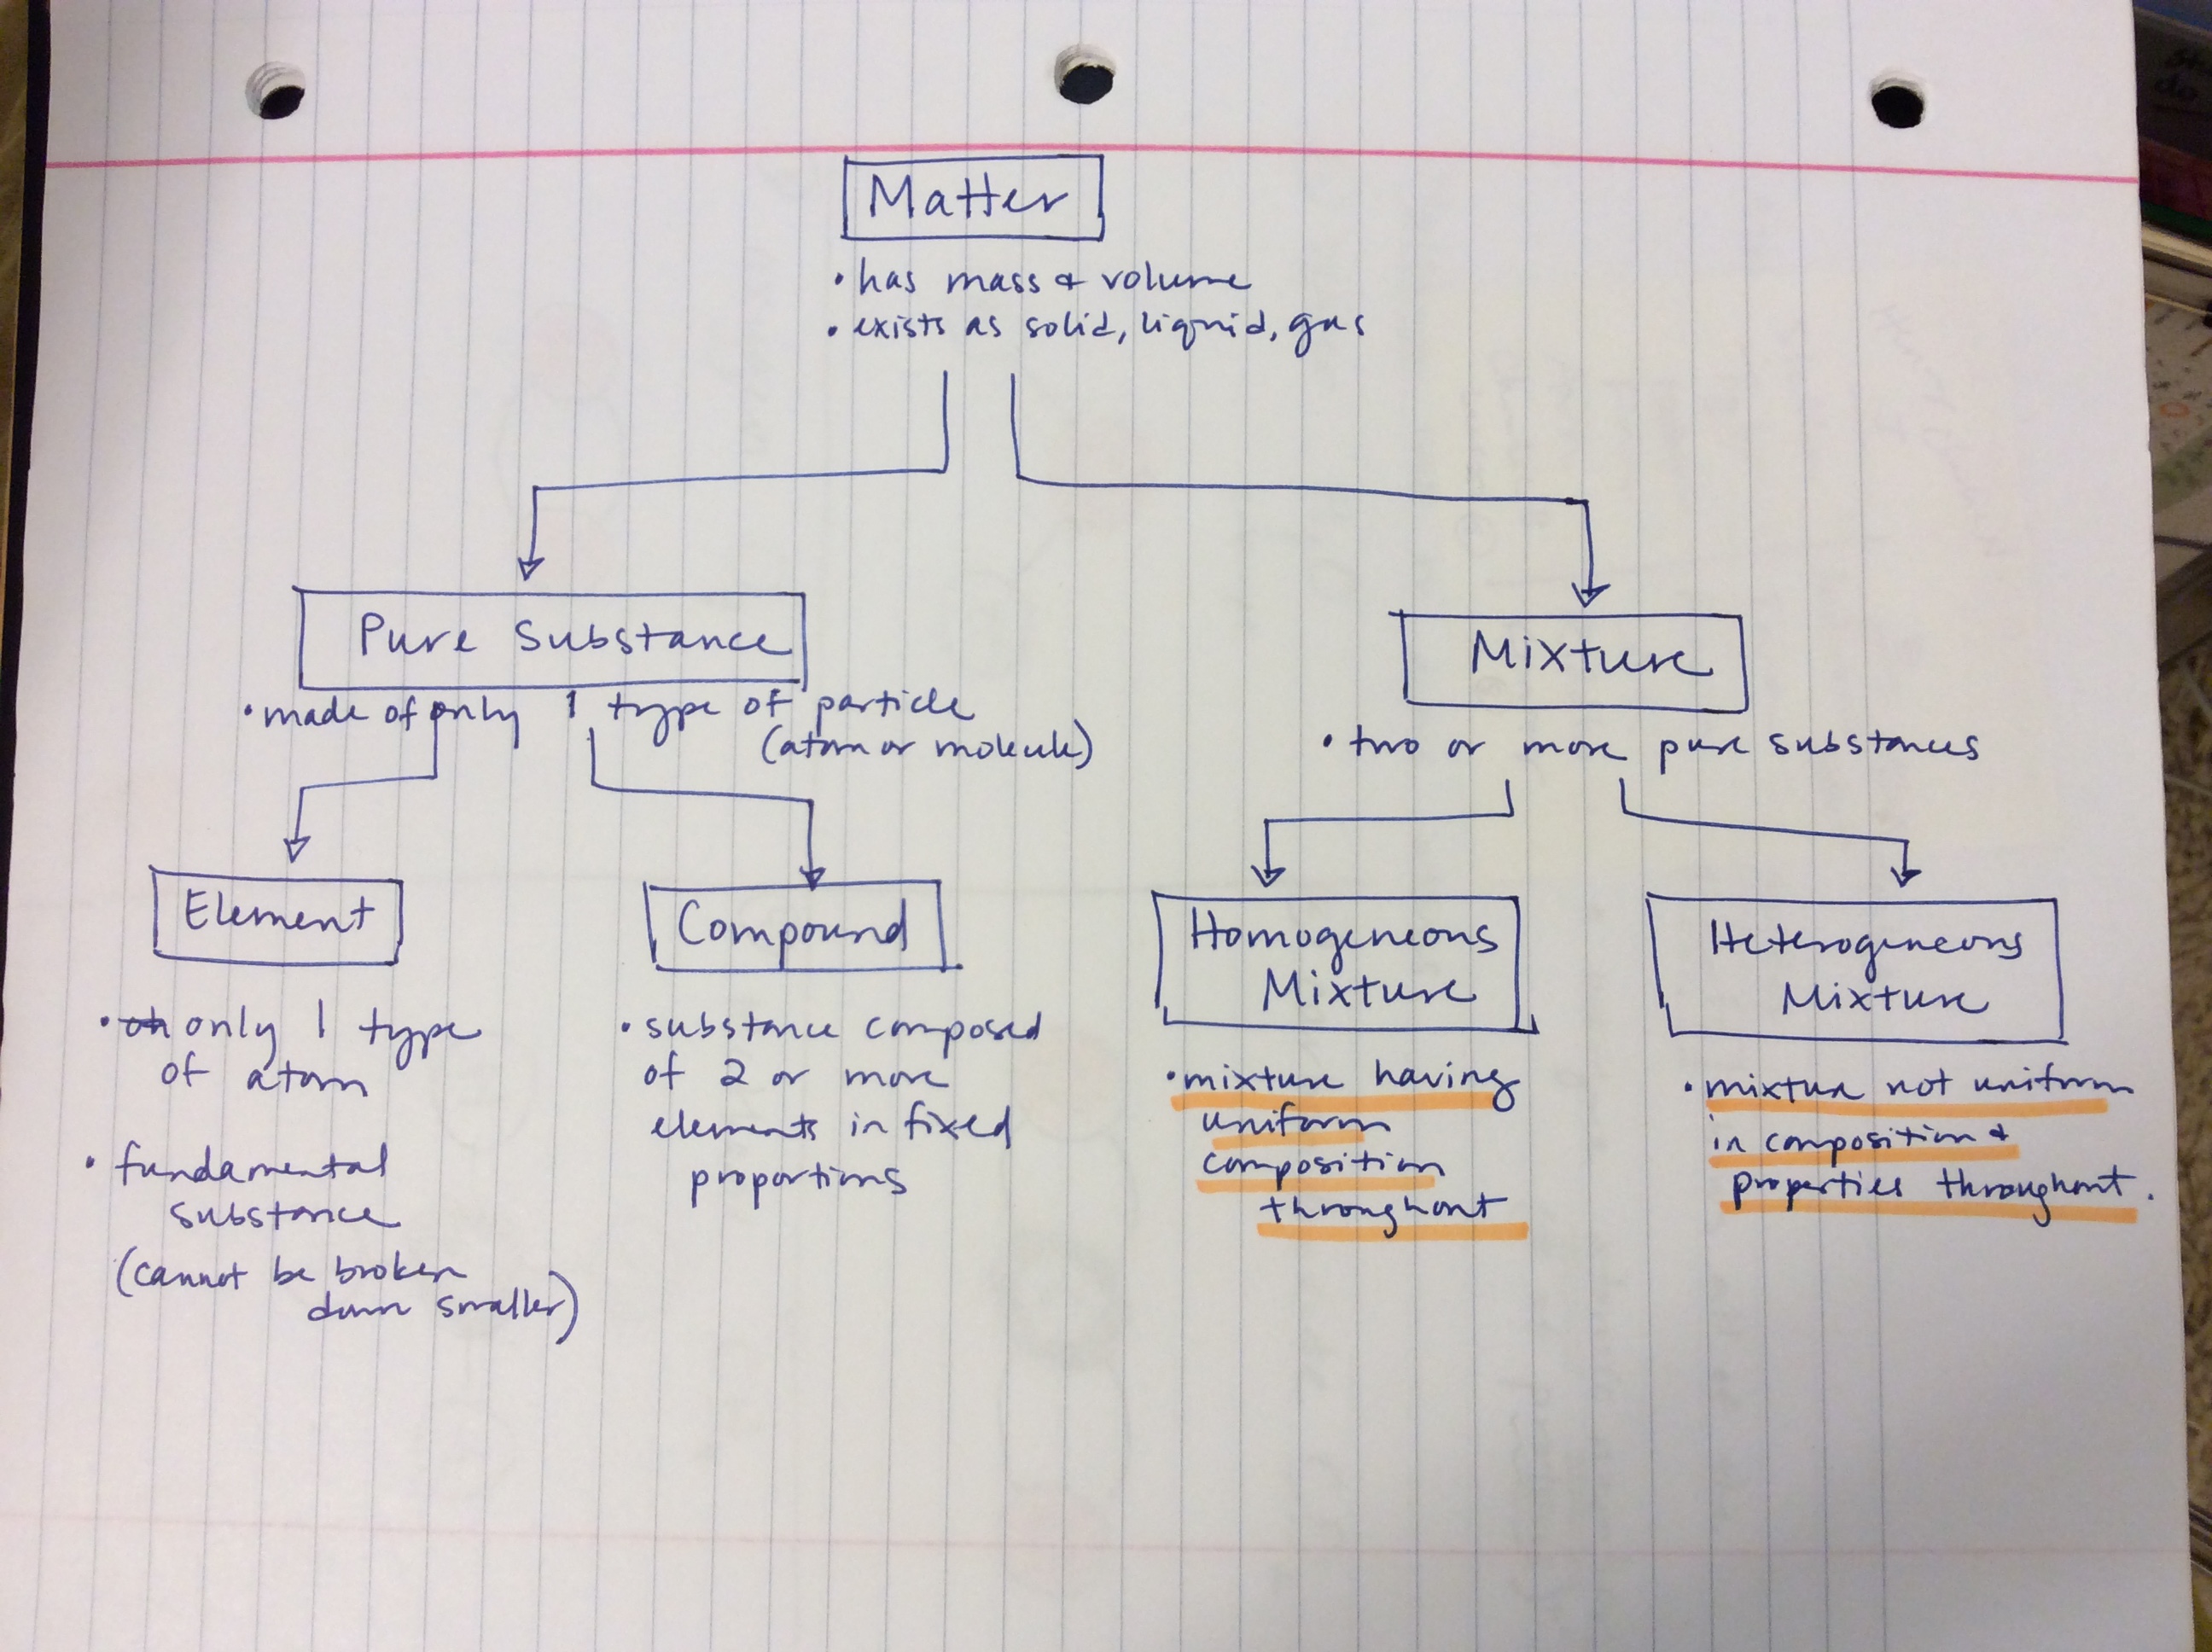 Matter
• has mass & volume
• exists as solid, liquid, gas
Pure Substance
• made of only 1 type of particle
(atom or molecule)
Mixture
• two or more pure substances
Element
• only 1 type
of atom
• fundamental
substance
(cannot be broken
down smaller)
Compound
• substance composed
of 2 or more
elements in fixed
proportions
Homogeneous
Mixture
• mixture having
uniform
composition
throughout
Heterogeneous
Mixture
• mixture not uniform
in composition &
properties throughout.